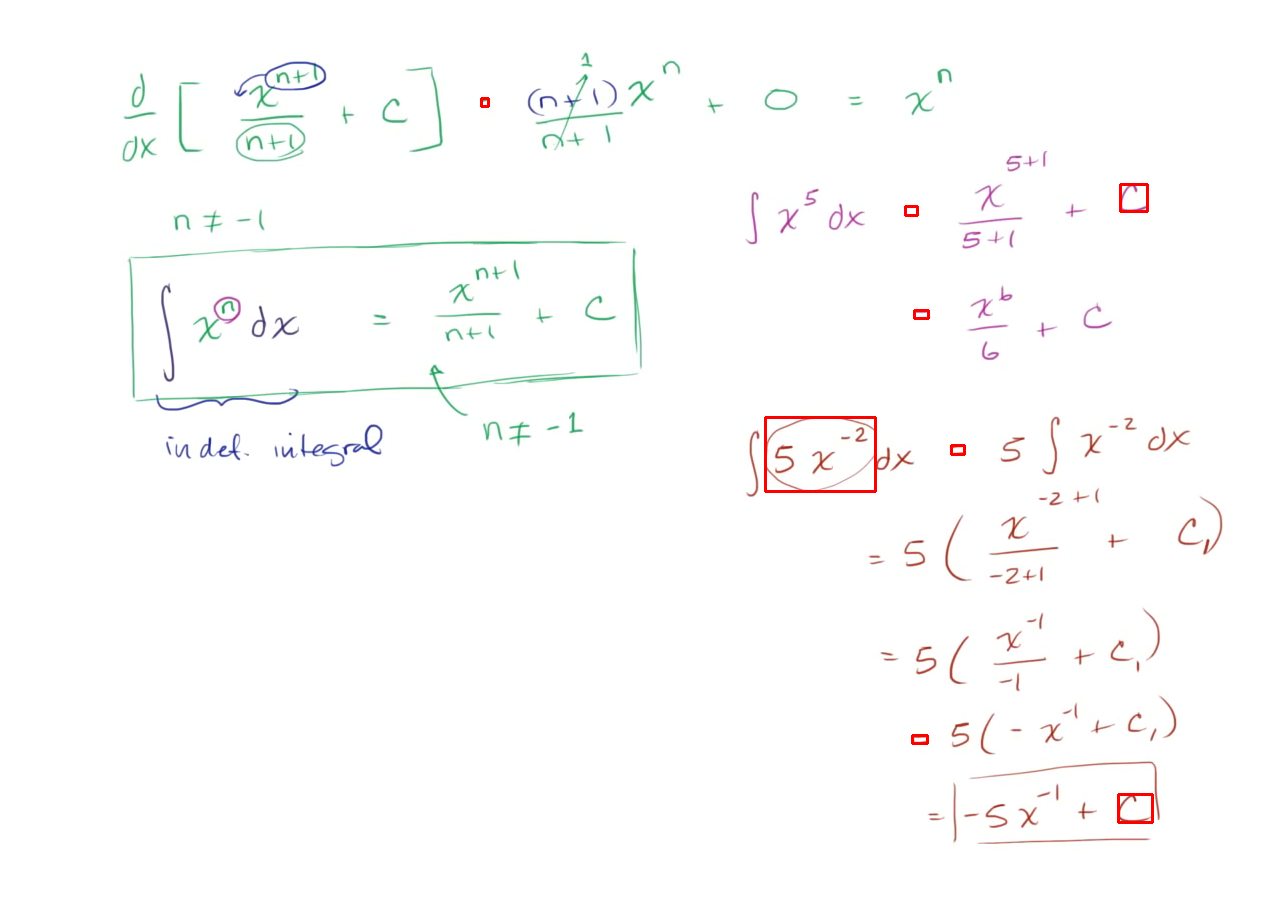 d/dx [ x^(n+1)/(n+1) + C ] = (n+1)x^n/(n+1) + 0 = x^n
1
n ≠ -1
∫ x^n dx = x^(n+1)/(n+1) + C
indef. integral
n ≠ -1
∫ x^5 dx = x^(5+1)/(5+1) + C
= x^6/6 + C
∫ 5x^(-2) dx = 5 ∫ x^(-2) dx
= 5 ( x^(-2+1)/(-2+1) + C₁ )
= 5 ( x^(-1)/(-1) + C₁ )
= 5 ( -x^(-1) + C₁ )
= -5x^(-1) + C